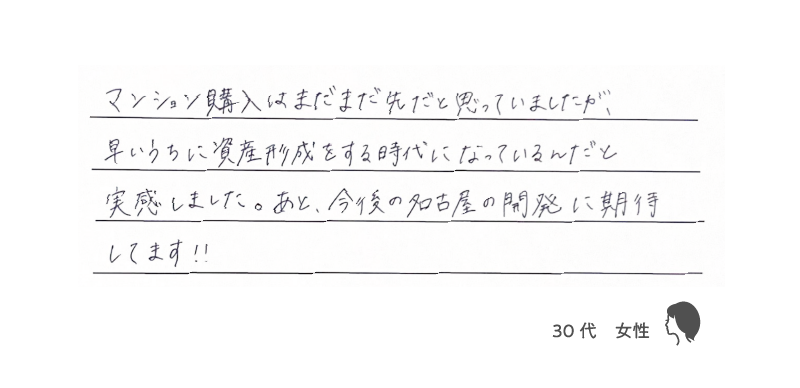 マンション購入はまだまだ先だと思っていましたが、
早いうちに資産形成をする時代になっているんだと
実感しました。あと、今後の名古屋の開発に期待
してます!!
30代 女性